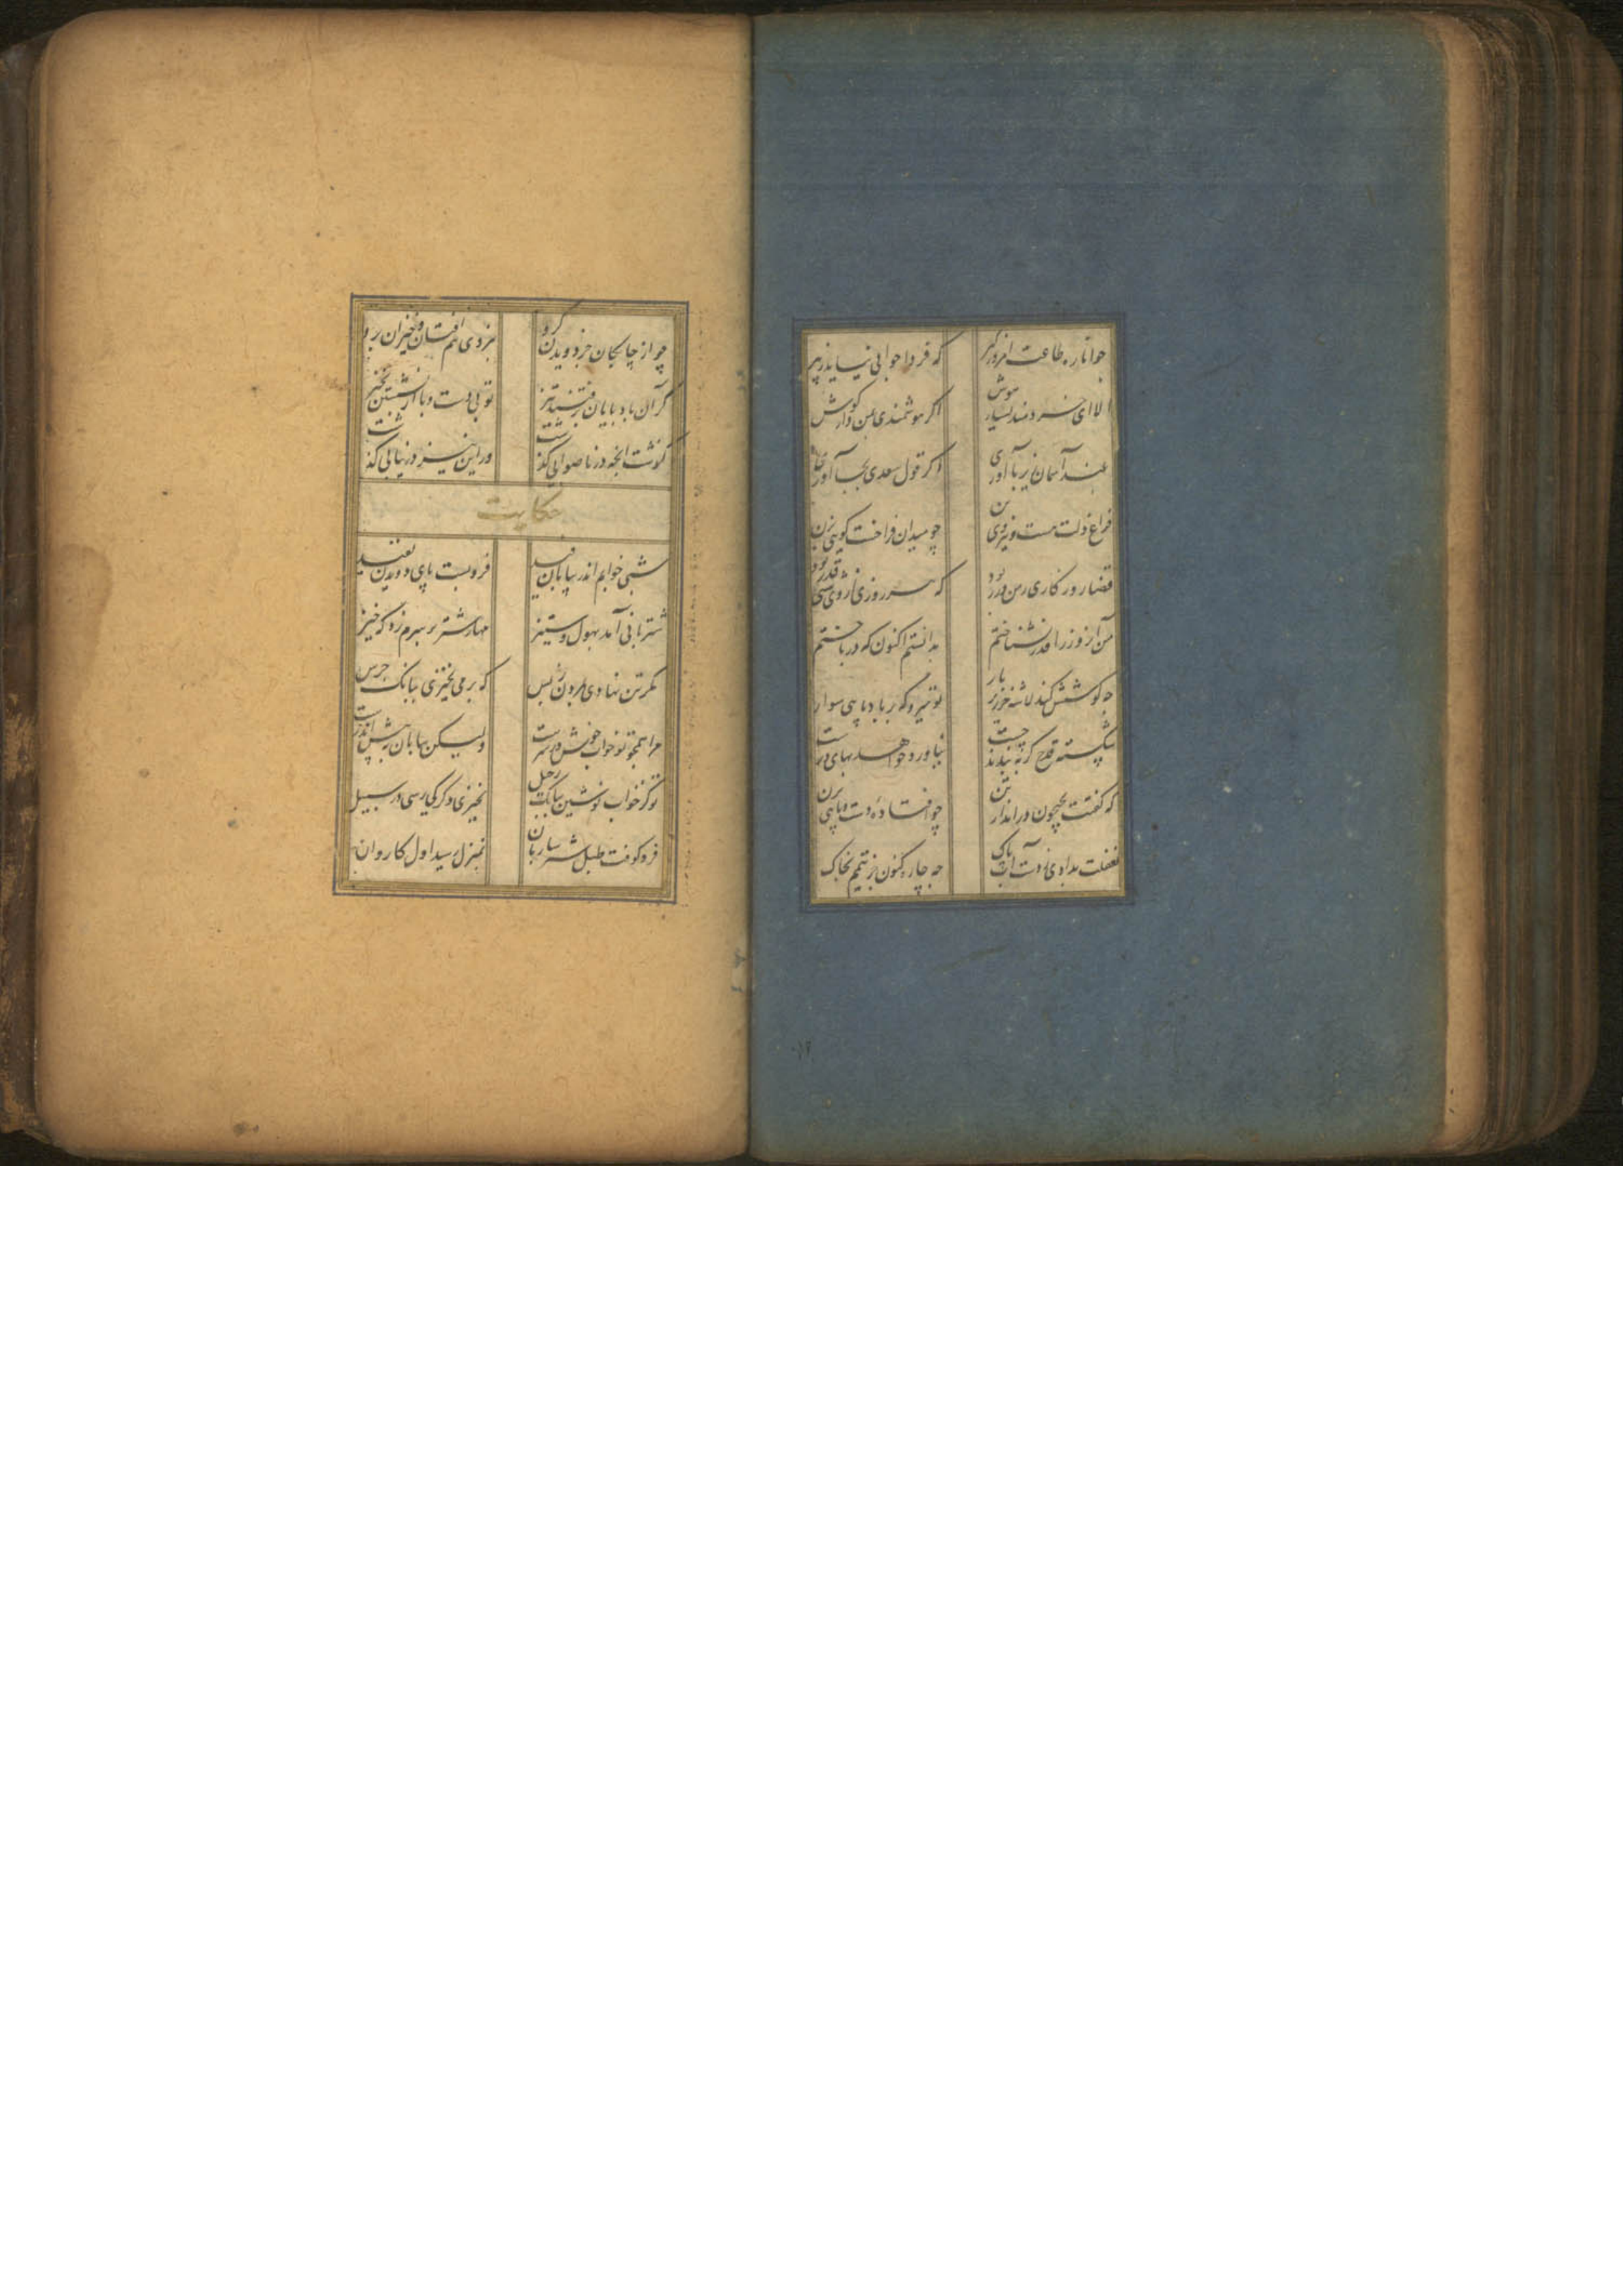 جوانا ره طاعت امروز گیر که فردا جوانی نیاید ز پیر
الا ای خردمند بسیار هوش اگر هوشمندی بمن دار گوش
بلند آسمان زیر پا آوری اگر قول سعدی بجا آوری
فراغ دلت هست و نیروی تن چو میدان فراخست گویی بزن
قضا روزگاری ز من در ربود که هر روزی از وی شبی قدر بود
من آن روز را قدر نشناختم بدانستم اکنون که در باختم
چه کوشش کند لاشه خر زیر بار تو میرو که بر باد پایی سوار
شکسته قدح گر ببندند چست نیاورد خواهد بهای درست
که گفتت بجیحون در انداز تن چو افتادهٔ دست و پایی بزن
بغفلت بدادی ز دست آب پاک چه چاره کنون جز تیمم بخاک
چو از چابکان در دویدن گرو نبردی هم افتان و خیزان برو
گر آن باد پایان برفتند تیز تو بی دست و پا از نشستن بخیز
گذشت آنچه در ناصوابی گذشت ور این نیز در نیابی گذشت
حکایت
شبی خوابم اندر بیابان فید فرو بست پای دویدن بقید
شتربانی آمد بهول و ستیز مهار شتر بر سرم زد که خیز
مگر تن نهادی بمردن ز پس که بر می نخیزی ببانگ جرس
مرا همچو تو خواب خوش در سرست ولیکن بیابان بپیش اندرست
تو کز خواب نوشین ببانگ رحیل نخیزی دگر کی رسی در سبیل
فرو کوفت طبل شتر ساربان بمنزل رسید اول کاروان